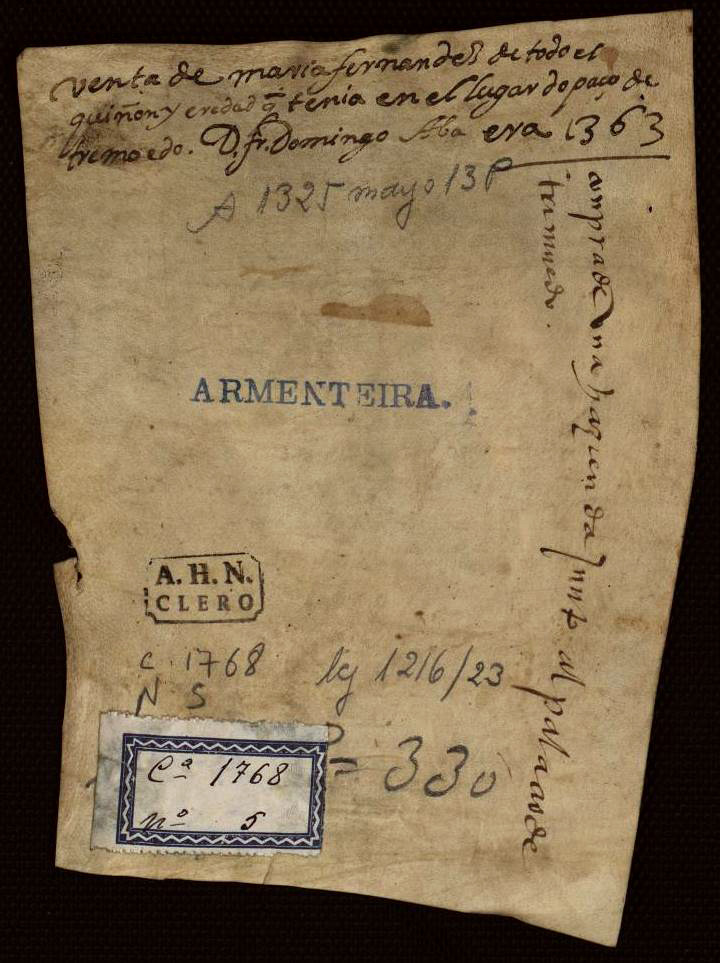 venta de maria fernandez de todo el
quiñon y eredad q̃ tenia en el lugar do paço de
tremoedo. D. fr. Domingo Aba era 1363
A 1325 mayo 13 P
ompra de una hazienda Junto al pala de
tramuedo.
ARMENTEIRA.
A. H. N.
CLERO
c. 1768 lg 1216/23
N 5
= 330
Cª 1768
nº 5